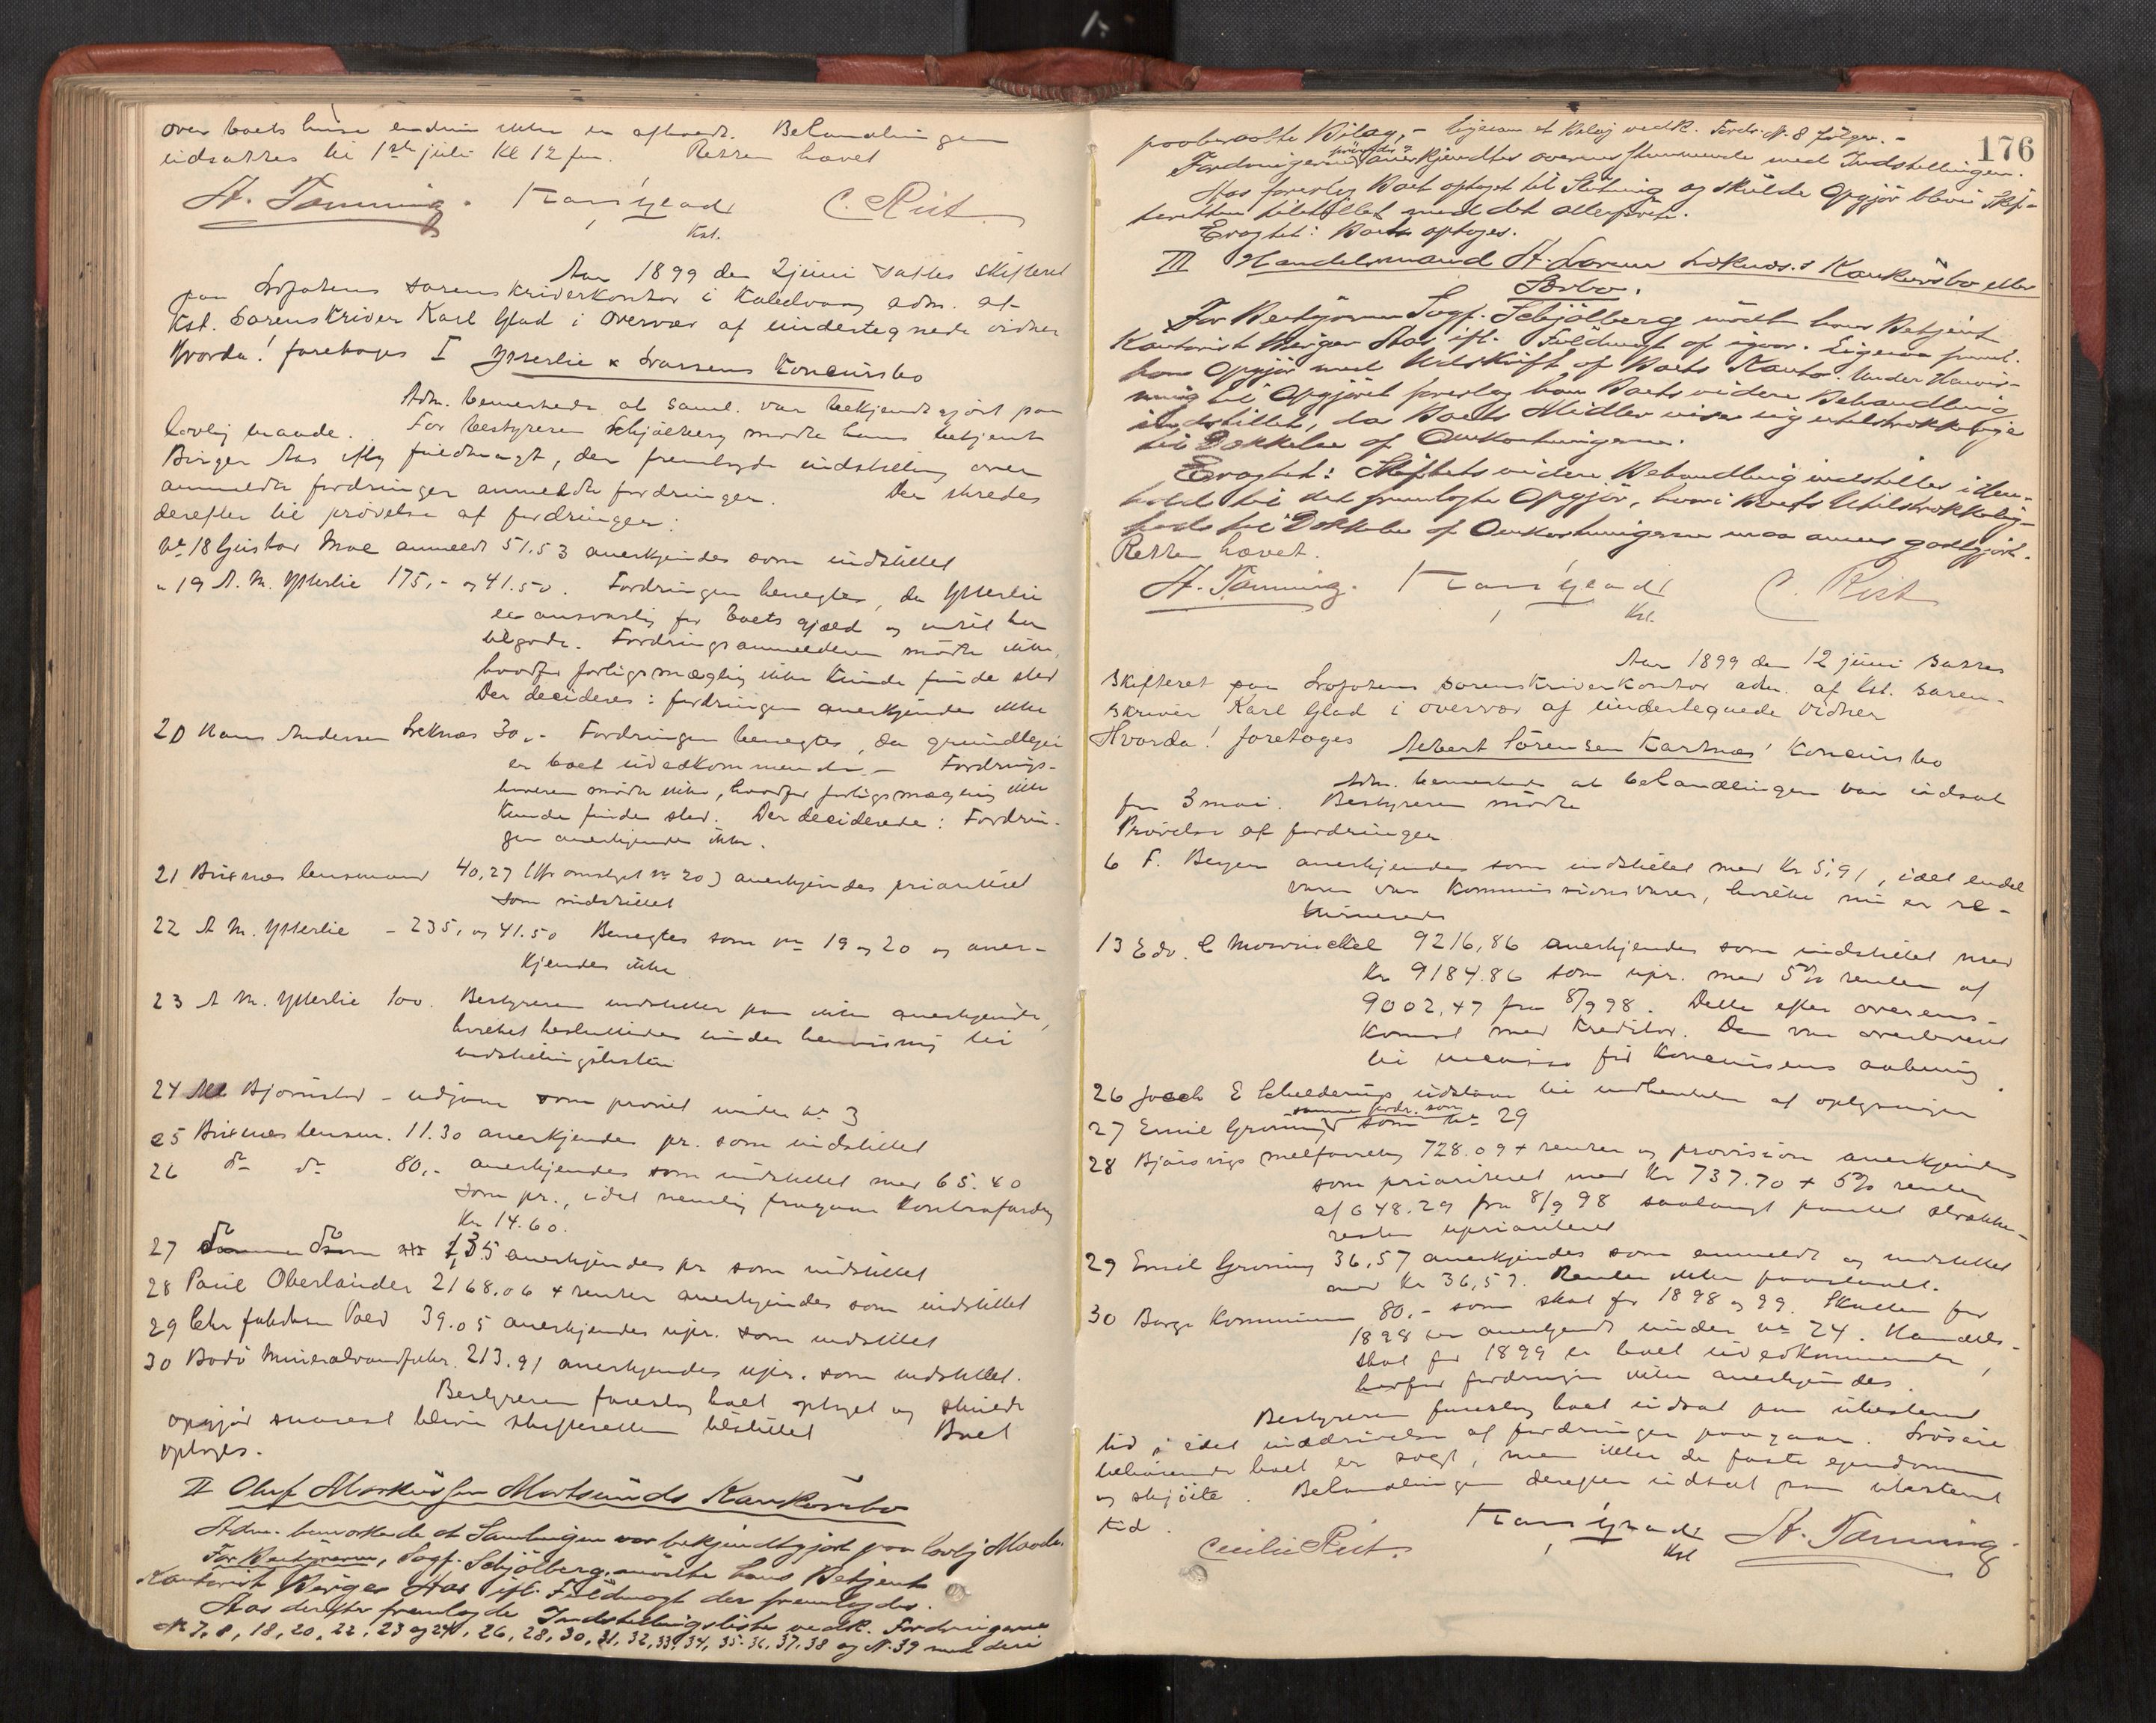 over boets huse endnu ikke er afholdt. Behandlingen
udsattes til 1ste juli Kl 12 fm. Retten hævet
A. Tanning. Karl Glad C. Rist
Kst.
Aar 1899 den 2 juni sattes skifteret
paa Lofotens sorenskriverkontor i Kabelvaag adm. af
Kst. Sorenskriver Karl Glad i overvær af undertegnede vidner
Hvorda! foretoges I Ytterlie & Larsens Koncursbo
Adm. bemerkede at saml. var bekjendtgjort paa
lovlig maade. For bestyreren Schjølberg mødte hans betjent
Birger Aas iflg fuldmagt, der fremlagde indstilling over
anmeldte fordringer anmeldte fordringer. Der skredes
derefter til prøvelse af fordringer:
No 18 Gustav Moe anmeldt 51.53 anerkjendes som indstillet
" 19 A. M. Ytterlie 175,- og 41.50. Fordringen benegtes, da Ytterlie
er ansvarlig for boets gjæld og intet har
tilgode. Fordringsanmelderen mødte ikke,
hvorfor forligsmægling ikke kunde finde sted
Der decideres: fordringen anerkjendes ikke
20 Hans Andersen Leknæs 30,- Fordringen benegtes, da grundleje
er boet uvedkommende. - Fordrings-
haveren mødte ikke, hvorfor forligsmægling ikke
kunde finde sted. Der decideredes: Fordrin-
gen anerkjendes ikke.
21 Buxnæs lensmand 40,27 (No omslaget No 20) anerkjendes prioriteret
som indstillet
22 A M. Ytterlie - 235,- og 41.50 Benegtes som No 19 og 20 og aner-
kjendes ikke
23 A M. Ytterlie 100. Bestyreren indstiller paa ikke anerkjendt,
hvilket besluttedes under henvisning til
indstillingslisten
24 Bjørnstad - udgaar som prøvet under No 3
25 Buxnæs lensm. 11.30 anerkjendes pr. som indstillet
26 do do 80,- anerkjendes som indstillet med 65.40
som pr., idet nemlig fragaar kontrafordring
Kr 14.60.
27 do do 135 anerkjendes pr som indstillet
28 Paul Oberländer 2168.06 + renter anerkjendes som indstillet
29 Chr Jakobsen Vold 39.05 anerkjendes upr. som indstillet
30 Bodø Mineralvandfabr. 213.91 anerkjendes upr. som indstillet.
Bestyreren foreslog boet optaget og skulde
opgjør snarest blive skifteretten tilstillet Boet
optoges.
II Oluf Markussen Mortsunds Konkursbo
Adm. bemerkede at Samlingen var bekjendtgjort paa lovlig Maade.
For Bestyreren, Sagf. Schjølberg, mødte hans Betjent
Kontorist Birger Aas ifl. Fuldmagt der fremlagdes.
Aas derefter fremlagde Indstillingsliste vedk. Fordringerne
No 7, 8, 18, 20, 22, 23 og 24, 26, 28, 30, 31, 32, 33, 34, 35, 36, 37, 38 og No 39 med deri
176
paaberaabte Bilag, - ligesom et Bilag vedk. Fordr. No 8 følger. -
Fordringerne prøvedes & anerkjendtes overensstemmende med Indstillingen.
Aas foreslog Boet optaget til Slutning og skulde Opgjør blive Skif-
teretten tilstillet med det allerførste.
Eragtet: Boet optoges.
III Handelsmand A. Larsen Loknæs's Konkursbo eller
Børbo.
For Bestyreren Sagf. Schjølberg mødte hans Betjent
Kontorist Birger Aas ifl. Fuldmagt af igaar. Ligesom freml.
han Opgjør med Udskrift af Boets Konto. Under Henvis-
ning til Opgjøret foreslog han Boets videre Behandling
indstillet, da Boets Midler viser sig utilstrækkelige
til Dækkelse af Omkostningerne.
Eragtet: Skiftets videre Behandling indstilles i Hen-
hold til det fremlagte Opgjør, hvori Boets Utilstrækkelig-
hed til Dækkelse af Omkostningerne maa anses godtgjort.
Retten hævet.
A. Tanning. Karl Glad C. Rist
Kst.
Aar 1899 den 12 juni sattes
skifteret paa Lofotens sorenskriverkontor adm. af Kst. soren-
skriver Karl Glad i overvær af undertegnede vidner
Hvorda! foretoges Albert Sörensen Kartnæs' Koncursbo
Adm. bemerkede at behandlingen var udsat
fra 3 mai. Bestyreren mødte
Prøvelse af fordringer
6 F. Beyer anerkjendes som indstillet med Kr 5,91, idet endel
varer var kommissionsvarer, hvilke nu er re-
turnerede
13 Edv. C Mowinckel 9216,86 anerkjendes som indstillet med
Kr 9184.86 som upr. med 5% renter af
9002,47 fra 8/9 98. Dette efter overens-
komst med kreditor. Den var overleveret
til incasso før Koncursens aabning.
26 Jacob E Schelderup udstaar til indhentelse af oplysninger
27 Emil Grønning samme fordr. som No 29
28 Bjørsvigs melforretn 728.09 + renter og provision anerkjendes
som prioriteret med Kr 737.70 + 5% renter
af 648.29 fra 8/9 98 saalangt pantet strække-
resten uprioriteret
29 Emil Grønning 36,57 anerkjendes som anmeldt og indstillet
med Kr 36,57. Renter ikke paastaaet.
30 Borge Kommune 80,- som skat for 1898 og 99. Skatten for
1898 er anerkjendt under No 24. Handels-
skat for 1899 er boet uvedkommende,
hvorfor fordringen ikke anerkjendes.
Bestyreren foreslog boet udsat paa ubestemt
tid, idet inddrivelse af fordringer paagaar. Løsøre
tilhørende boet er solgt, men ikke de faste ejendomme
og skjøite. Behandlingen derefter udsat paa ubestemt
tid.
Karl Glad A. Tanning
Kst
Cecilie Rist.